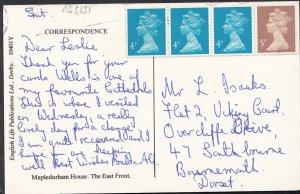 Sat.
CORRESPONDENCE
Dear Leslie
Thank you for your
cards Wells is one of
my favourite Cathedrals
This is where I visited
on Wednesday, a really
lovely day for a change
I am quite recovered and I
hope you are keeping
well Best Wishes
English Life Publications Ltd., Derby. 10401Y
Mapledurham House. The East Front.
4P
4P
4P
5P
Mr L.
Flat 2,
Overcliffe Drive,
47 Southbourne
Bournemouth
Dorset.